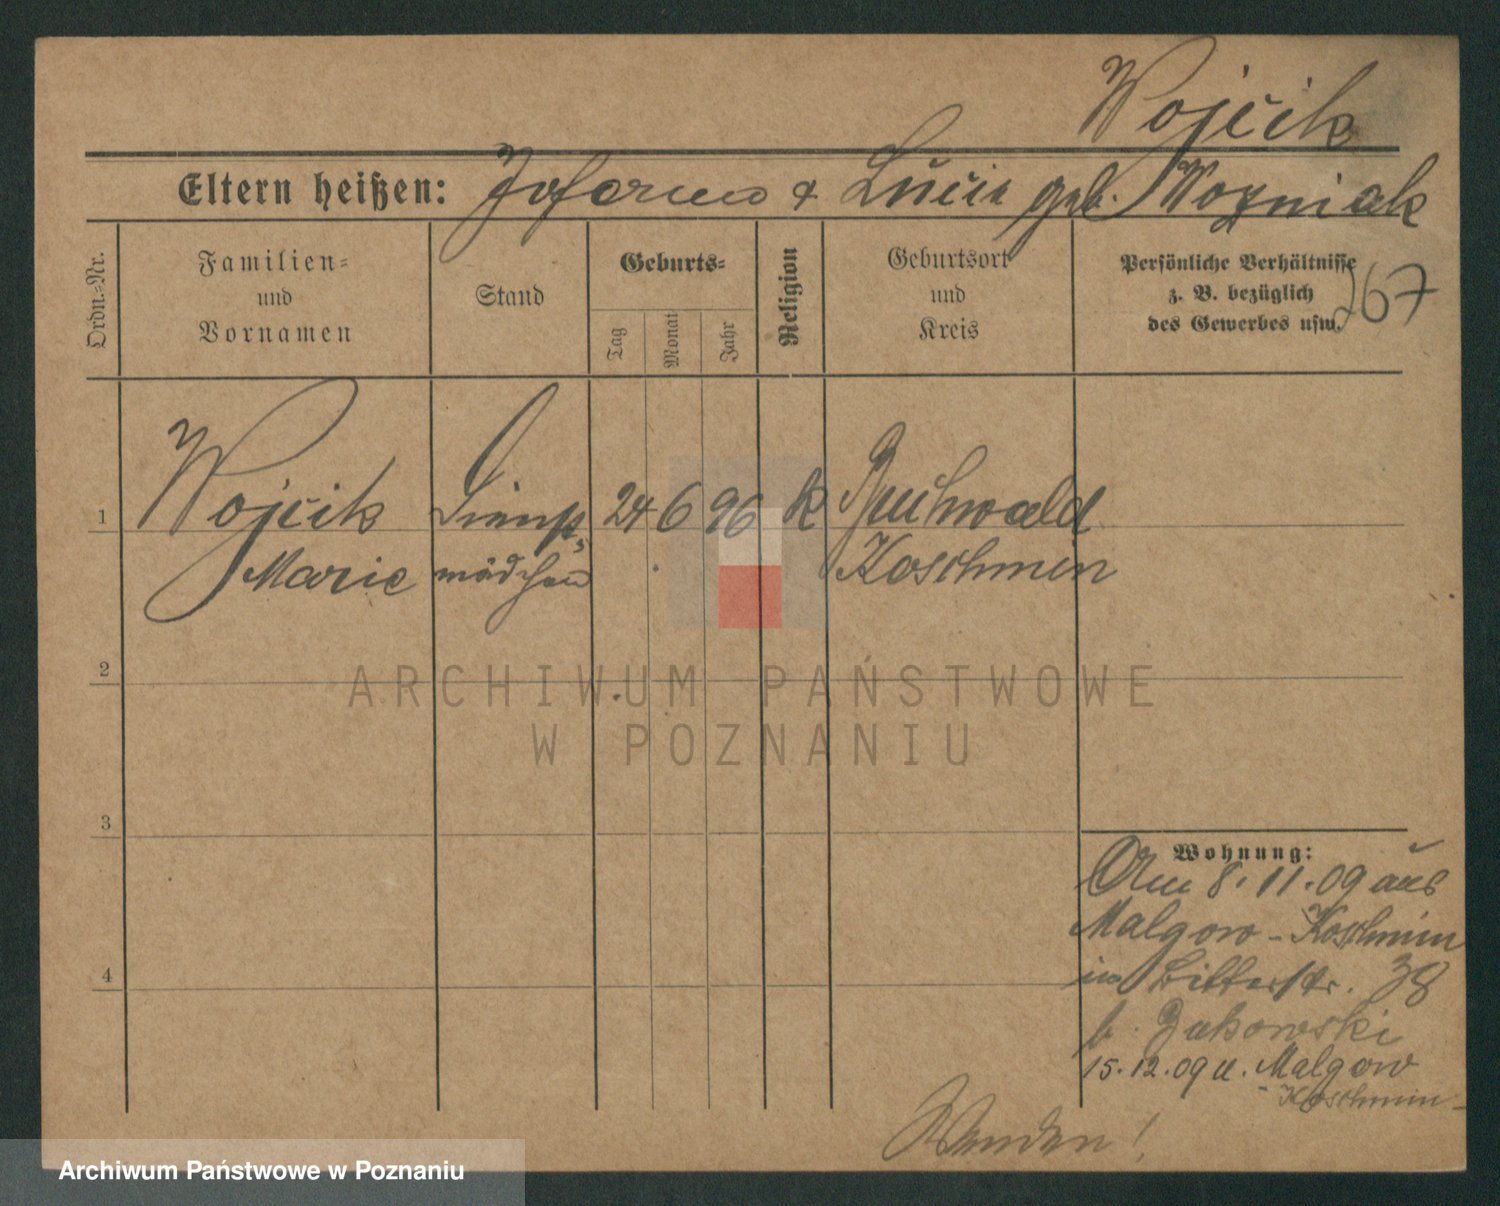 Wojcik
Eltern heißen: Johann & Lucie geb. Wozniak
Ordn.-Nr.
Familien-
und
Vornamen
Stand
Geburts-
Tag
Monat
Jahr
Religion
Geburtsort
und
Kreis
Persönliche Verhältnisse
z. B. bezüglich
des Gewerbes usw.
267
1
Wojcik
Marie
Dienst-
mädchen
24 6 96
k
Buchwald
Koschmin
2
ARCHIWUM PAŃSTWOWE
W POZNANIU
3
Wohnung:
Am 8.11.09 aus
Malgow-Koschmin
in Bitterstr. 38
b. Zukowski
15.12.09 n. Malgow
-Koschmin-
4
Wenden!
Archiwum Państwowe w Poznaniu